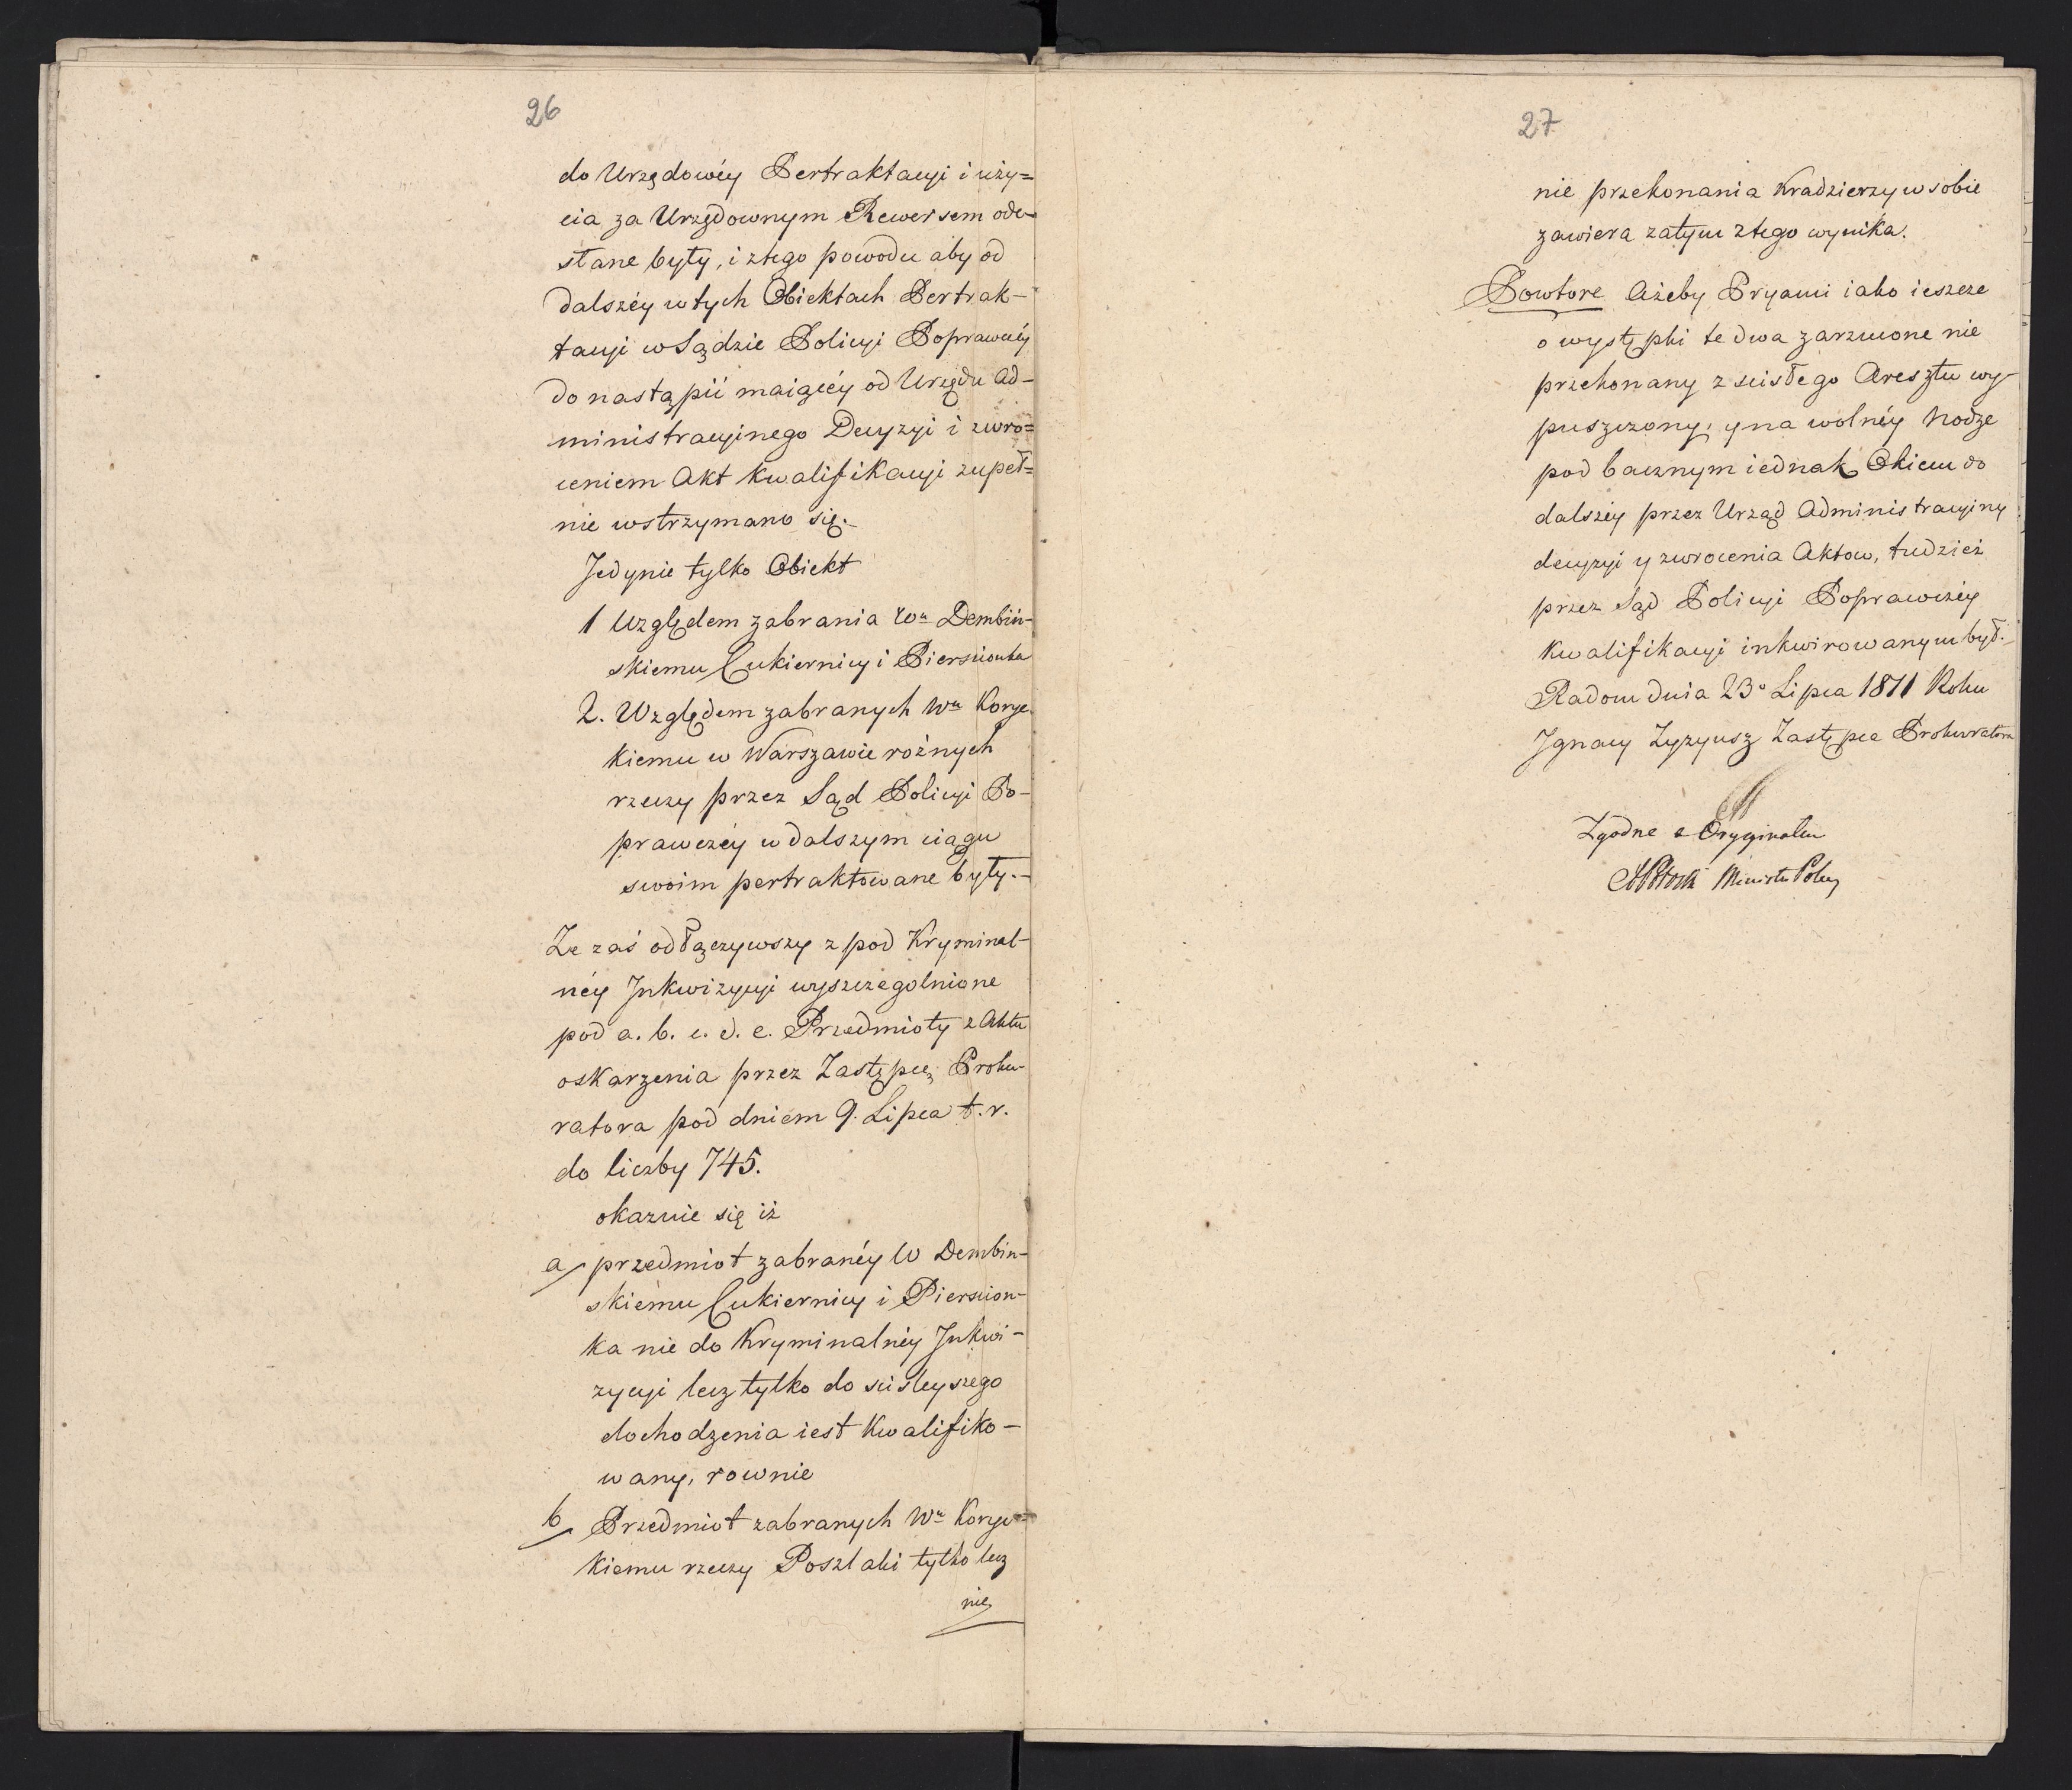 26
do Urzędowéy Pertraktacyi i uży=
cia za Urzędownym Rewersem ode=
słane były, i ztego powodu aby od
dalszéy w tych Obiektach Pertrak-
tacyi w Sądzie Policyi Poprawczéy
do nastąpić maiącéy od Urzędu Ad-
ministracyinego Decyzyi i zwro=
ceniem Akt Kwalifikacyi zupeł=
nie wstrzymano się.
Jedynie tylko Obiekt
1 Względem zabrania Wu Dembiń-
skiemu Cukiernicy i Pierscionka
2. Względem zabranych Wu Koryc-
kiemu w Warszawie rożnych
rzeczy przez Sąd Policyi Po-
prawczéy w dalszym ciągu
swoim pertraktowane były.-
Ze zaś odłączywszy z pod Kryminal-
néy Inkwizycyi wyszczegolnione
pod a. b. c. d. e. Przedmioty z Aktu
oskarzenia przez Zastępcę Proku-
ratora pod dniem 9. Lipca t. r.
do liczby 745.
okazuie się iż
a/ przedmiot zabranéy W Dembin-
skiemu Cukiernicy i Pierscion-
ka nie do Kryminalnéy Inkwi-
zycyi lecz tylko do scisleyszego
dochodzenia iest Kwalifiko-
wany, rownie
b/ Przedmiot zabranych Wu Koryc=
kiemu rzeczy Poszlaki tylko lecz
nie
27
nie przekonania Kradzierzy w sobie
zawiera zatym ztego wynika.
Powtore Ażeby Pryami iako ieszcze
o występki te dwa zarzucone nie
przekonany z scisłego Aresztu wy-
puszczony, y na wolnéy Nodze
pod bacznym iednak Okiem do
dalszéy przez Urząd Administracyiny
decyzyi y zwrocenia Aktow, tudzież
przez Sąd Policyi Poprawczéy
Kwalifikacyi inkwirowanym był.
Radom dnia 23o Lipca 1811 Roku
Ignacy Zyzyusz Zastępca Prokuratora
Zgodne z Oryginałem
Potocki Ministr Policy